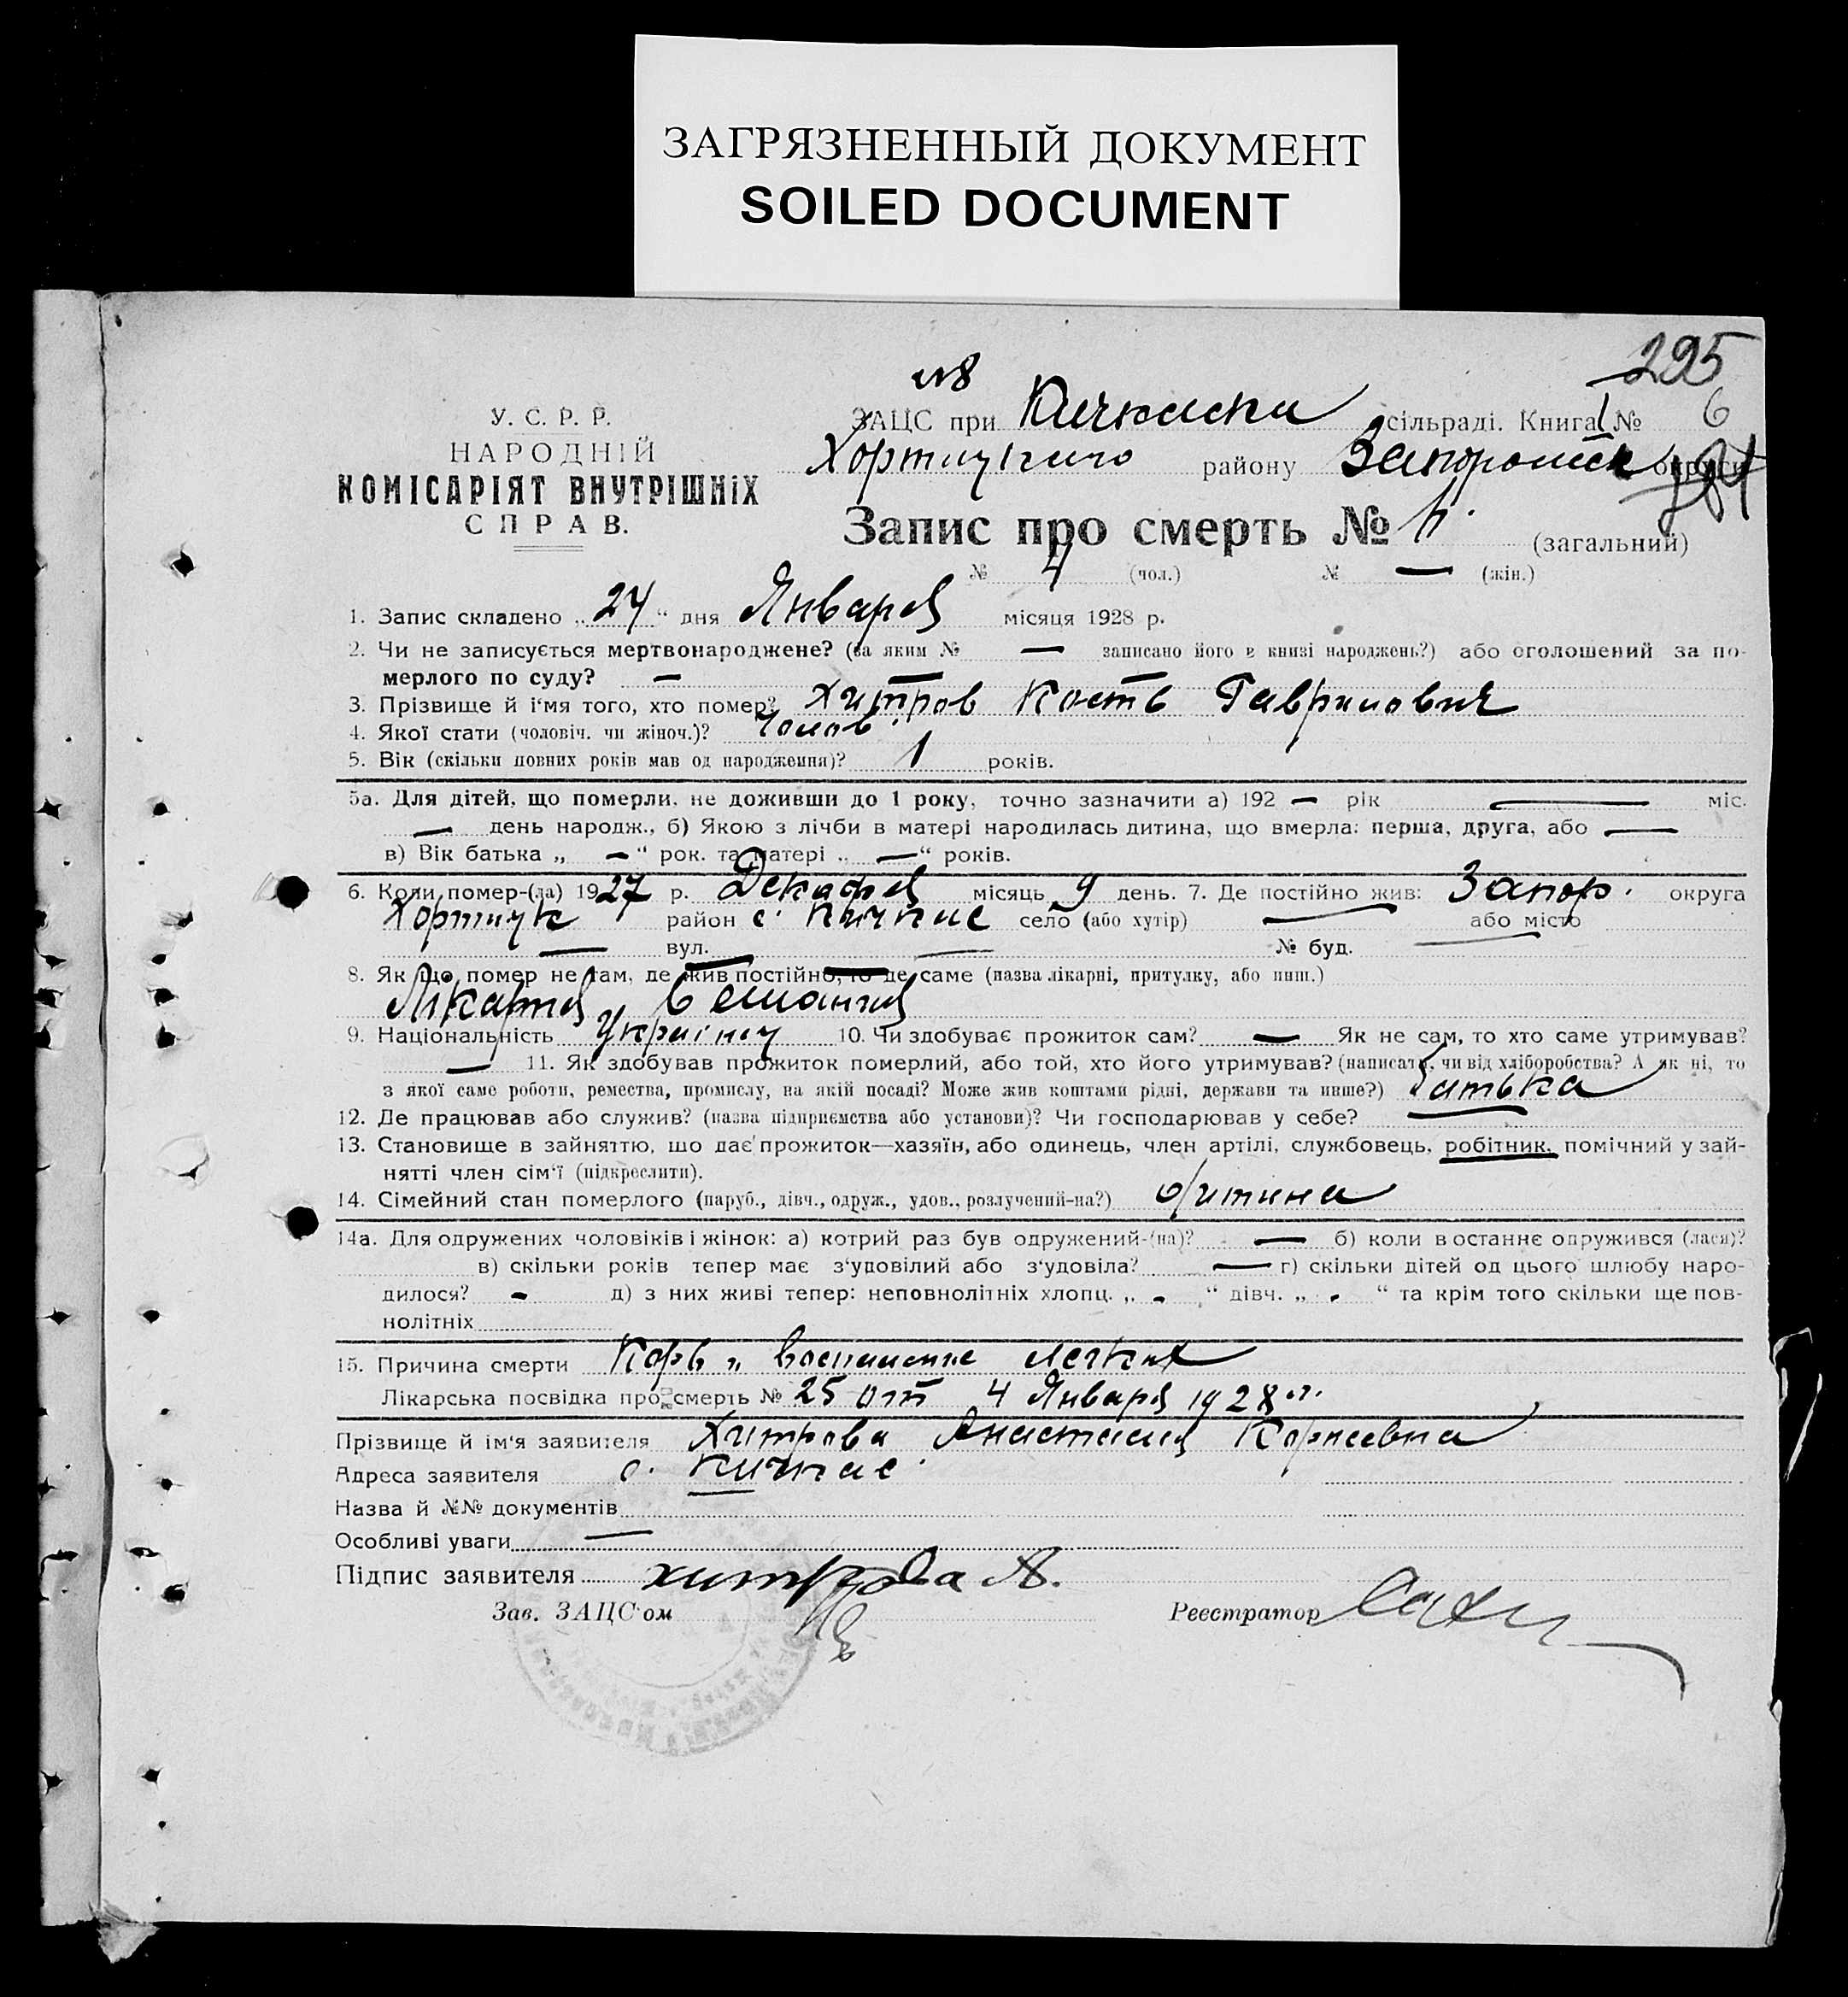 ЗАГРЯЗНЕННЫЙ ДОКУМЕНТ
SOILED DOCUMENT
295
№8
У. С. Р. Р.
НАРОДНІЙ
КОМІСАРІЯТ ВНУТРІШНІХ
СПРАВ.
ЗАЦС при Кичкаски сільраді. Книга 1 № 6
Хортицького району Запорожск округи
Запис про смерть № (загальний)
№ 4 (чол.) № — (жін.)
1. Запис складено „ 24 “ дня Января місяця 1928 р.
2. Чи не записується мертвонароджене? (за яким № — записано його в книзі народжень?) або оголошений за по-
мерлого по суду? — — —
3. Прізвище й і‘мя того, хто помер? Хитров Кость Гаврилович
4. Якої стати (чоловіч. чи жіноч.)? Чолов.
5. Вік (скільки повних років мав од народження)? 1 років.
5а. Для дітей, що померли, не доживши до 1 року, точно зазначити а) 192 — рік — міс.
— день народж., б) Якою з лічби в матері народилась дитина, що вмерла: перша, друга, або —
в) Вік батька „ — “ рок. та матері „ — “ років.
6. Коли помер-(ла) 1927 р. Декабря місяць 9 день. 7. Де постійно жив: Запор. округа
Хортицк район с. Кичкас село (або хутір) — або місто
— вул. — № буд. —
8. Як що помер не там, де жив постійно, то де саме (назва лікарні, притулку, або инш.)
Лікарня
9. Національність Україніц 10. Чи здобуває прожиток сам? — Як не сам, то хто саме утримував?
— 11. Як здобував прожиток померлий, або той, хто його утримував? (написати, чи від хліборобства? А як ні, то
з якої саме роботи, ремества, промислу, на якій посаді? Може жив коштами рідні, держави та инше?) батька
12. Де працював або служив? (назва підприємства або установи)? Чи господарював у себе? —
13. Становище в зайняттю, що дає прожиток—хазяїн, або одинець, член артілі, службовець, робітник, помічний у зай-
нятті член сім‘ї (підкреслити).
14. Сімейний стан померлого (паруб., дівч., одруж., удов., розлучений-на?) дитина
14а. Для одружених чоловіків і жінок: а) котрий раз був одружений-(на)? — б) коли востаннє одружився (лася)?
в) скільки років тепер має з‘удовілий або з‘удовіла? — г) скільки дітей од цього шлюбу наро-
дилося? - д) з них живі тепер: неповнолітніх хлопц. „ - “ дівч. „ - “ та крім того скільки ще пов-
нолітніх
15. Причина смерти Корь и воспаление легких
Лікарська посвідка про смерть № 25 от 4 Января 1928 г.
Прізвище й ім‘я заявителя Хитрова Анастасия Корнеевна
Адреса заявителя с. Кичкас
Назва й №№ документів —
Особливі уваги —
Підпис заявителя хитрова А.
Зав. ЗАЦС‘ом
Реєстратор